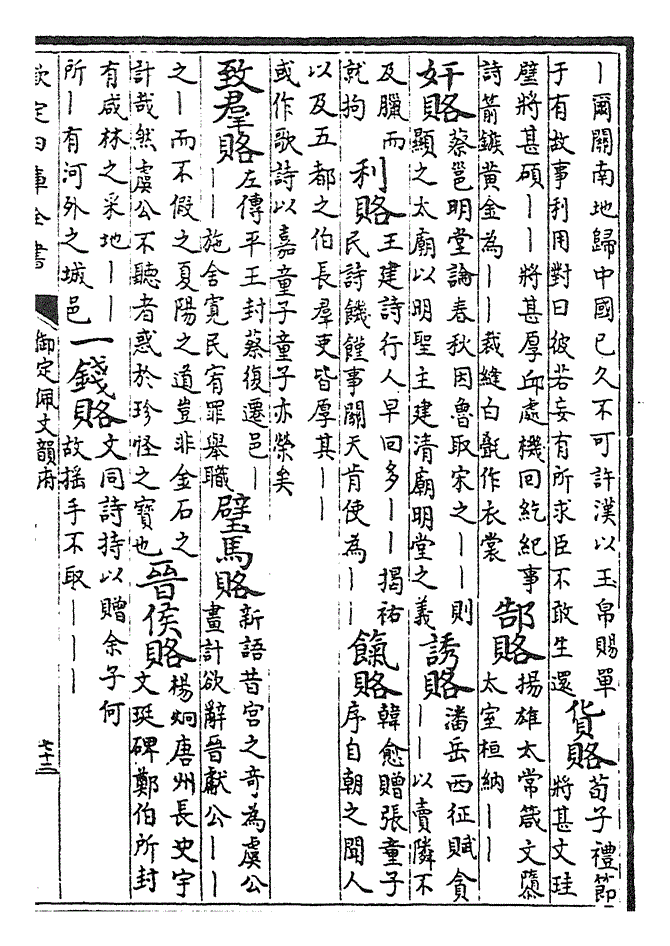 丨爾關南地歸中國已久不可許漢以玉帛賜單
于有故事利用對曰彼若妄有所求臣不敢生還
貨賂
荀子禮節
將甚文珪
璧將甚碩丨丨將甚厚邱處機回紇紀事
詩箭鏃黃金為丨丨裁縫白㲲作衣裳
郜賂
揚雄太常箴文隳
太室桓納丨丨
奸賂
蔡邕明堂論春秋因魯取宋之丨丨則
顯之太廟以明聖主建清廟明堂之義
誘賂
潘岳西征賦貪
丨丨以賣隣不
及臘而
就拘
利賂
王建詩行人早回多丨丨揭祐
民詩饑饉事關天肯使為丨丨
餼賂
韓愈贈張童子
序自朝之聞人
以及五都之伯長羣吏皆厚其丨丨
或作歌詩以嘉童子童子亦榮矣
致羣賂
左傳平王封蔡復遷邑丨
丨丨施舍寬民宥罪舉職
璧馬賂
新語昔宮之奇為虞公
畫計欲辭晉獻公丨丨
之丨而不假之夏陽之道豈非金石之
計哉然虞公不聽者惑於珍怪之寶也
晉侯賂
楊炯唐州長史宇
文珽碑鄭伯所封
有咸林之采地丨丨
所丨有河外之城邑
一錢賂
文同詩持以贈余子何
故搖手不取丨丨丨
欽定四庫全書
御定佩文韻府
七十三